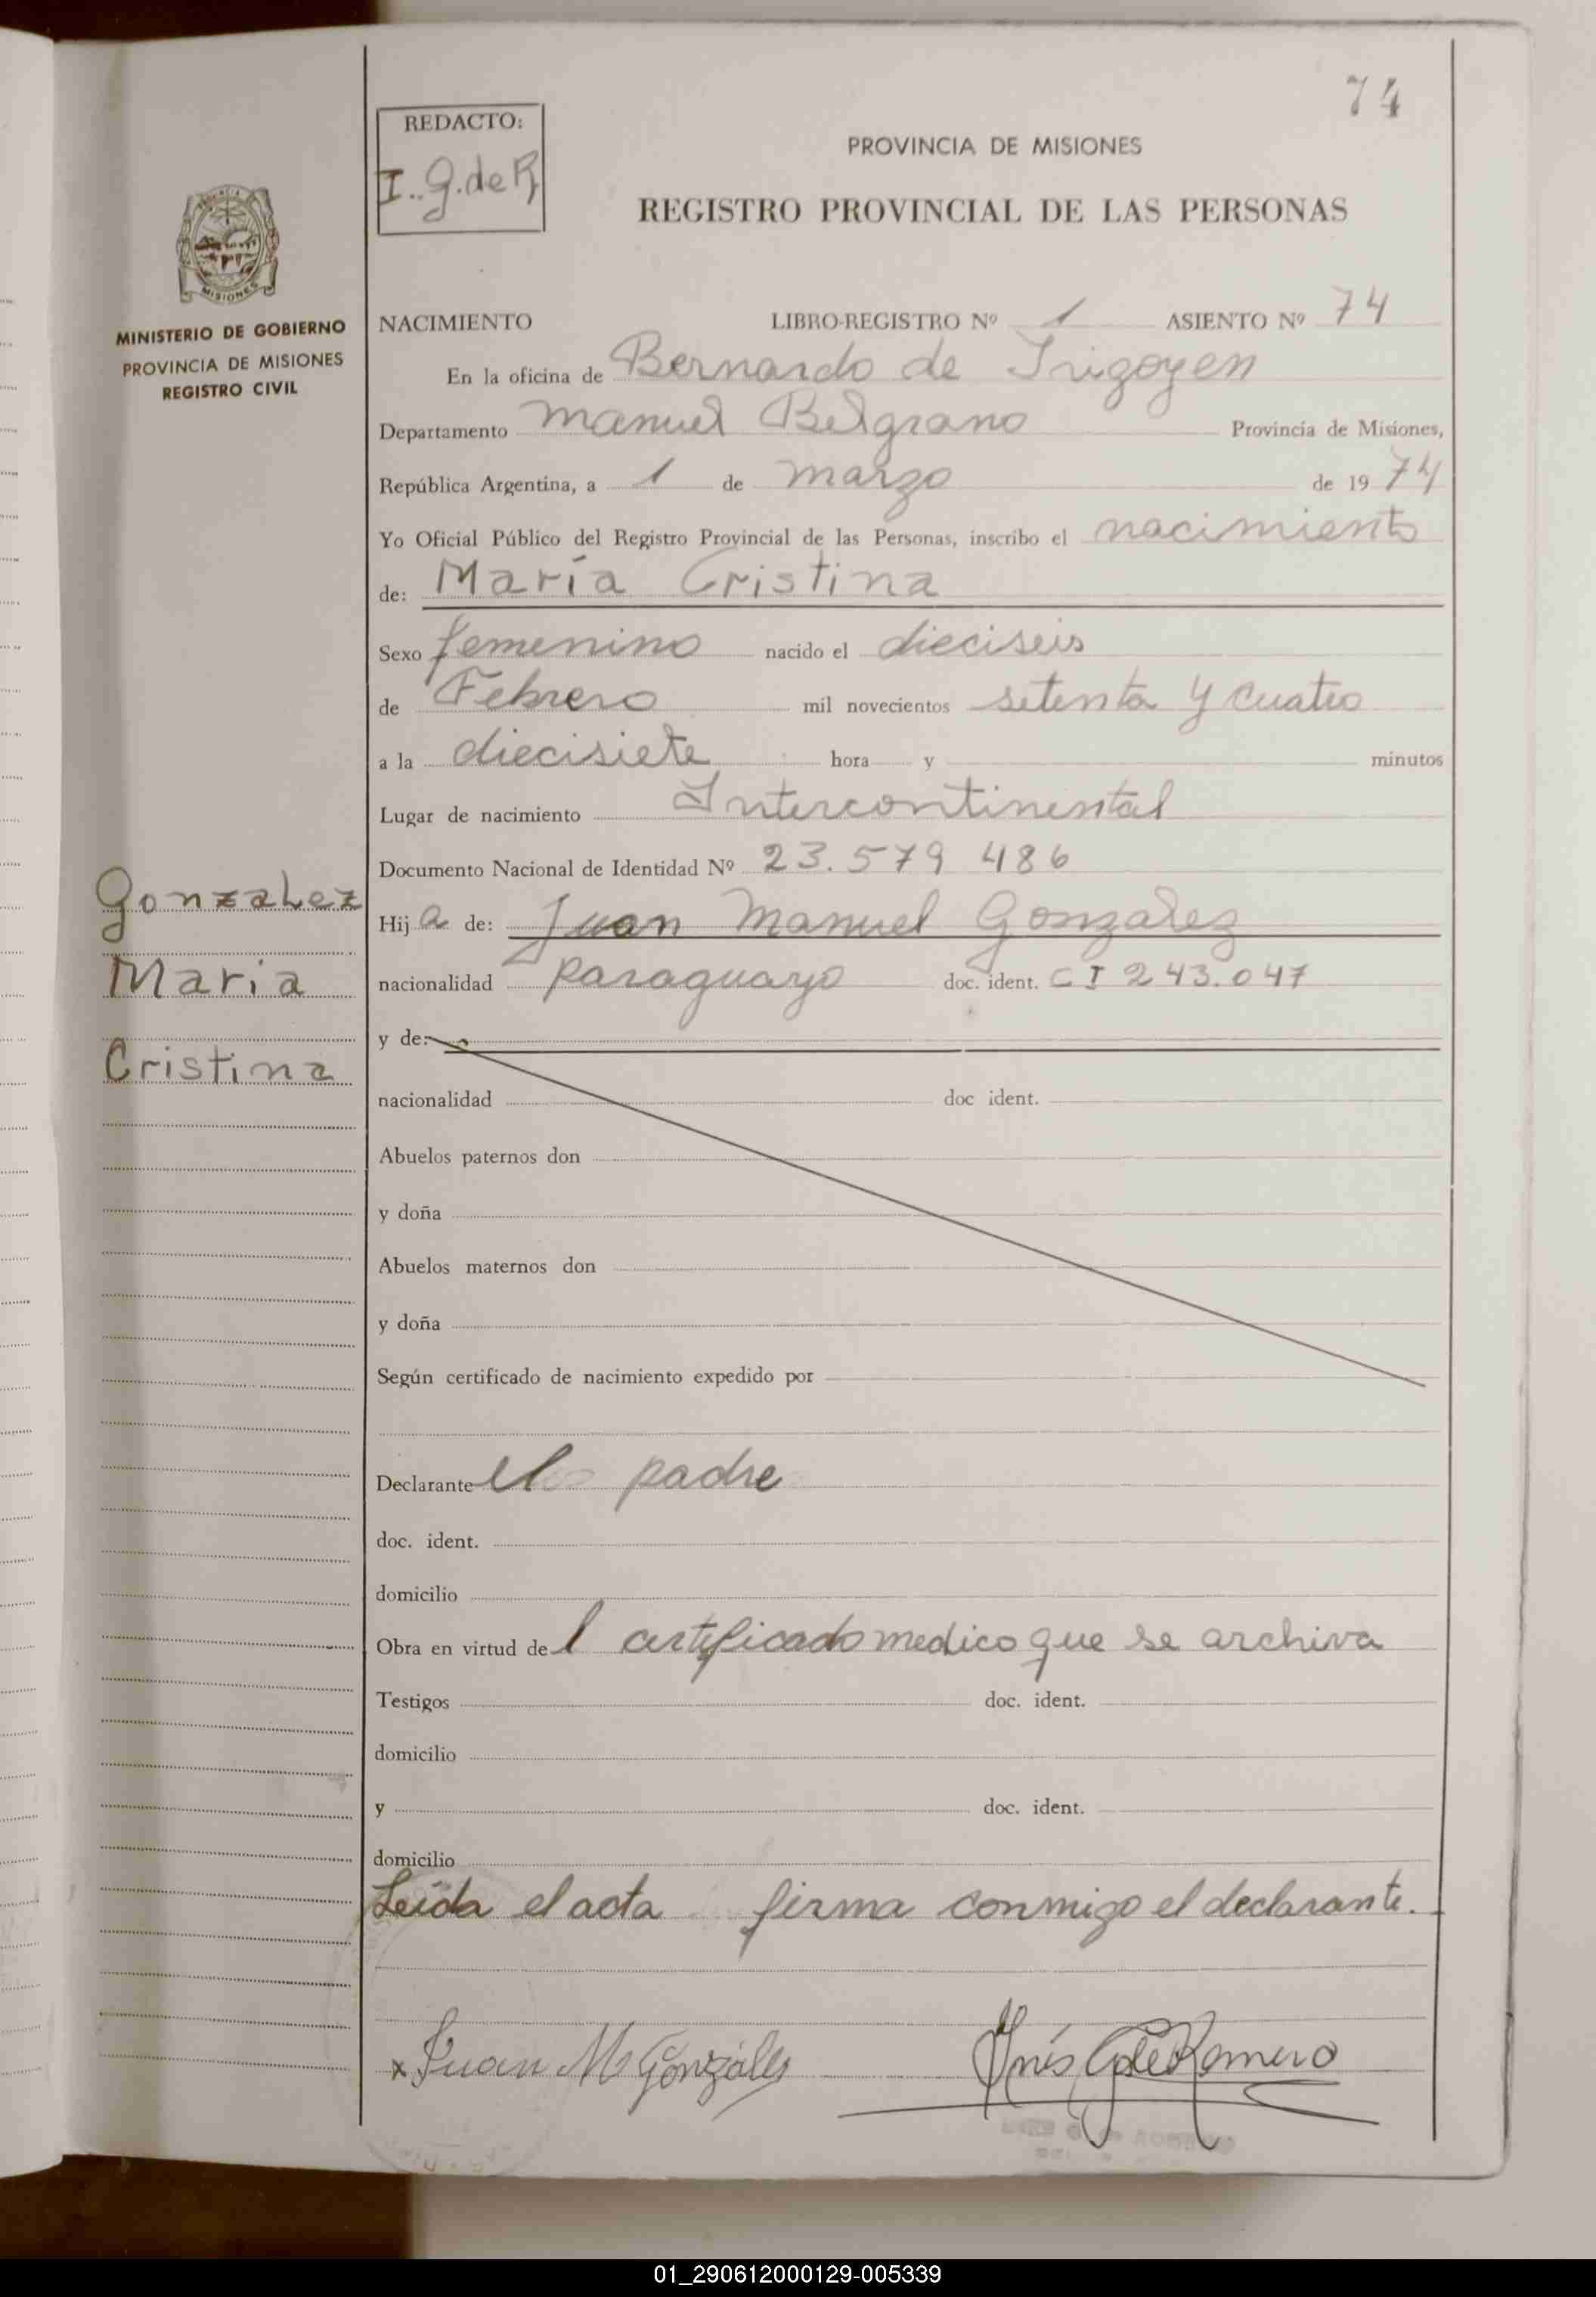 74
REDACTO:
I. G. de R
PROVINCIA DE MISIONES
REGISTRO PROVINCIAL DE LAS PERSONAS
MISIONES
MINISTERIO DE GOBIERNO
PROVINCIA DE MISIONES
REGISTRO CIVIL
NACIMIENTO LIBRO-REGISTRO Nº 1 ASIENTO Nº 74
En la oficina de Bernardo de Irigoyen
Departamento Manuel Belgrano Provincia de Misiones,
República Argentina, a 1 de marzo de 1974
Yo Oficial Público del Registro Provincial de las Personas, inscribo el nacimiento
de: María Cristina
Sexo femenino nacido el dieciseis
de Febrero mil novecientos setenta y cuatro
a la diecisiete hora y minutos
Lugar de nacimiento Intercontinental
Documento Nacional de Identidad Nº 23.579 486
Gonzalez
Maria
Cristina
Hija de: Juan Manuel Gonzalez
nacionalidad paraguayo doc. ident. CI 243.047
y de:
nacionalidad doc ident.
Abuelos paternos don
y doña
Abuelos maternos don
y doña
Según certificado de nacimiento expedido por
Declarante el padre
doc. ident.
domicilio
Obra en virtud del certificado medico que se archiva
Testigos doc. ident.
domicilio
y doc. ident.
domicilio
Leída el acta firma conmigo el declarante.
x Juan M Gonzáles Inés G de Romero
01_290612000129-005339